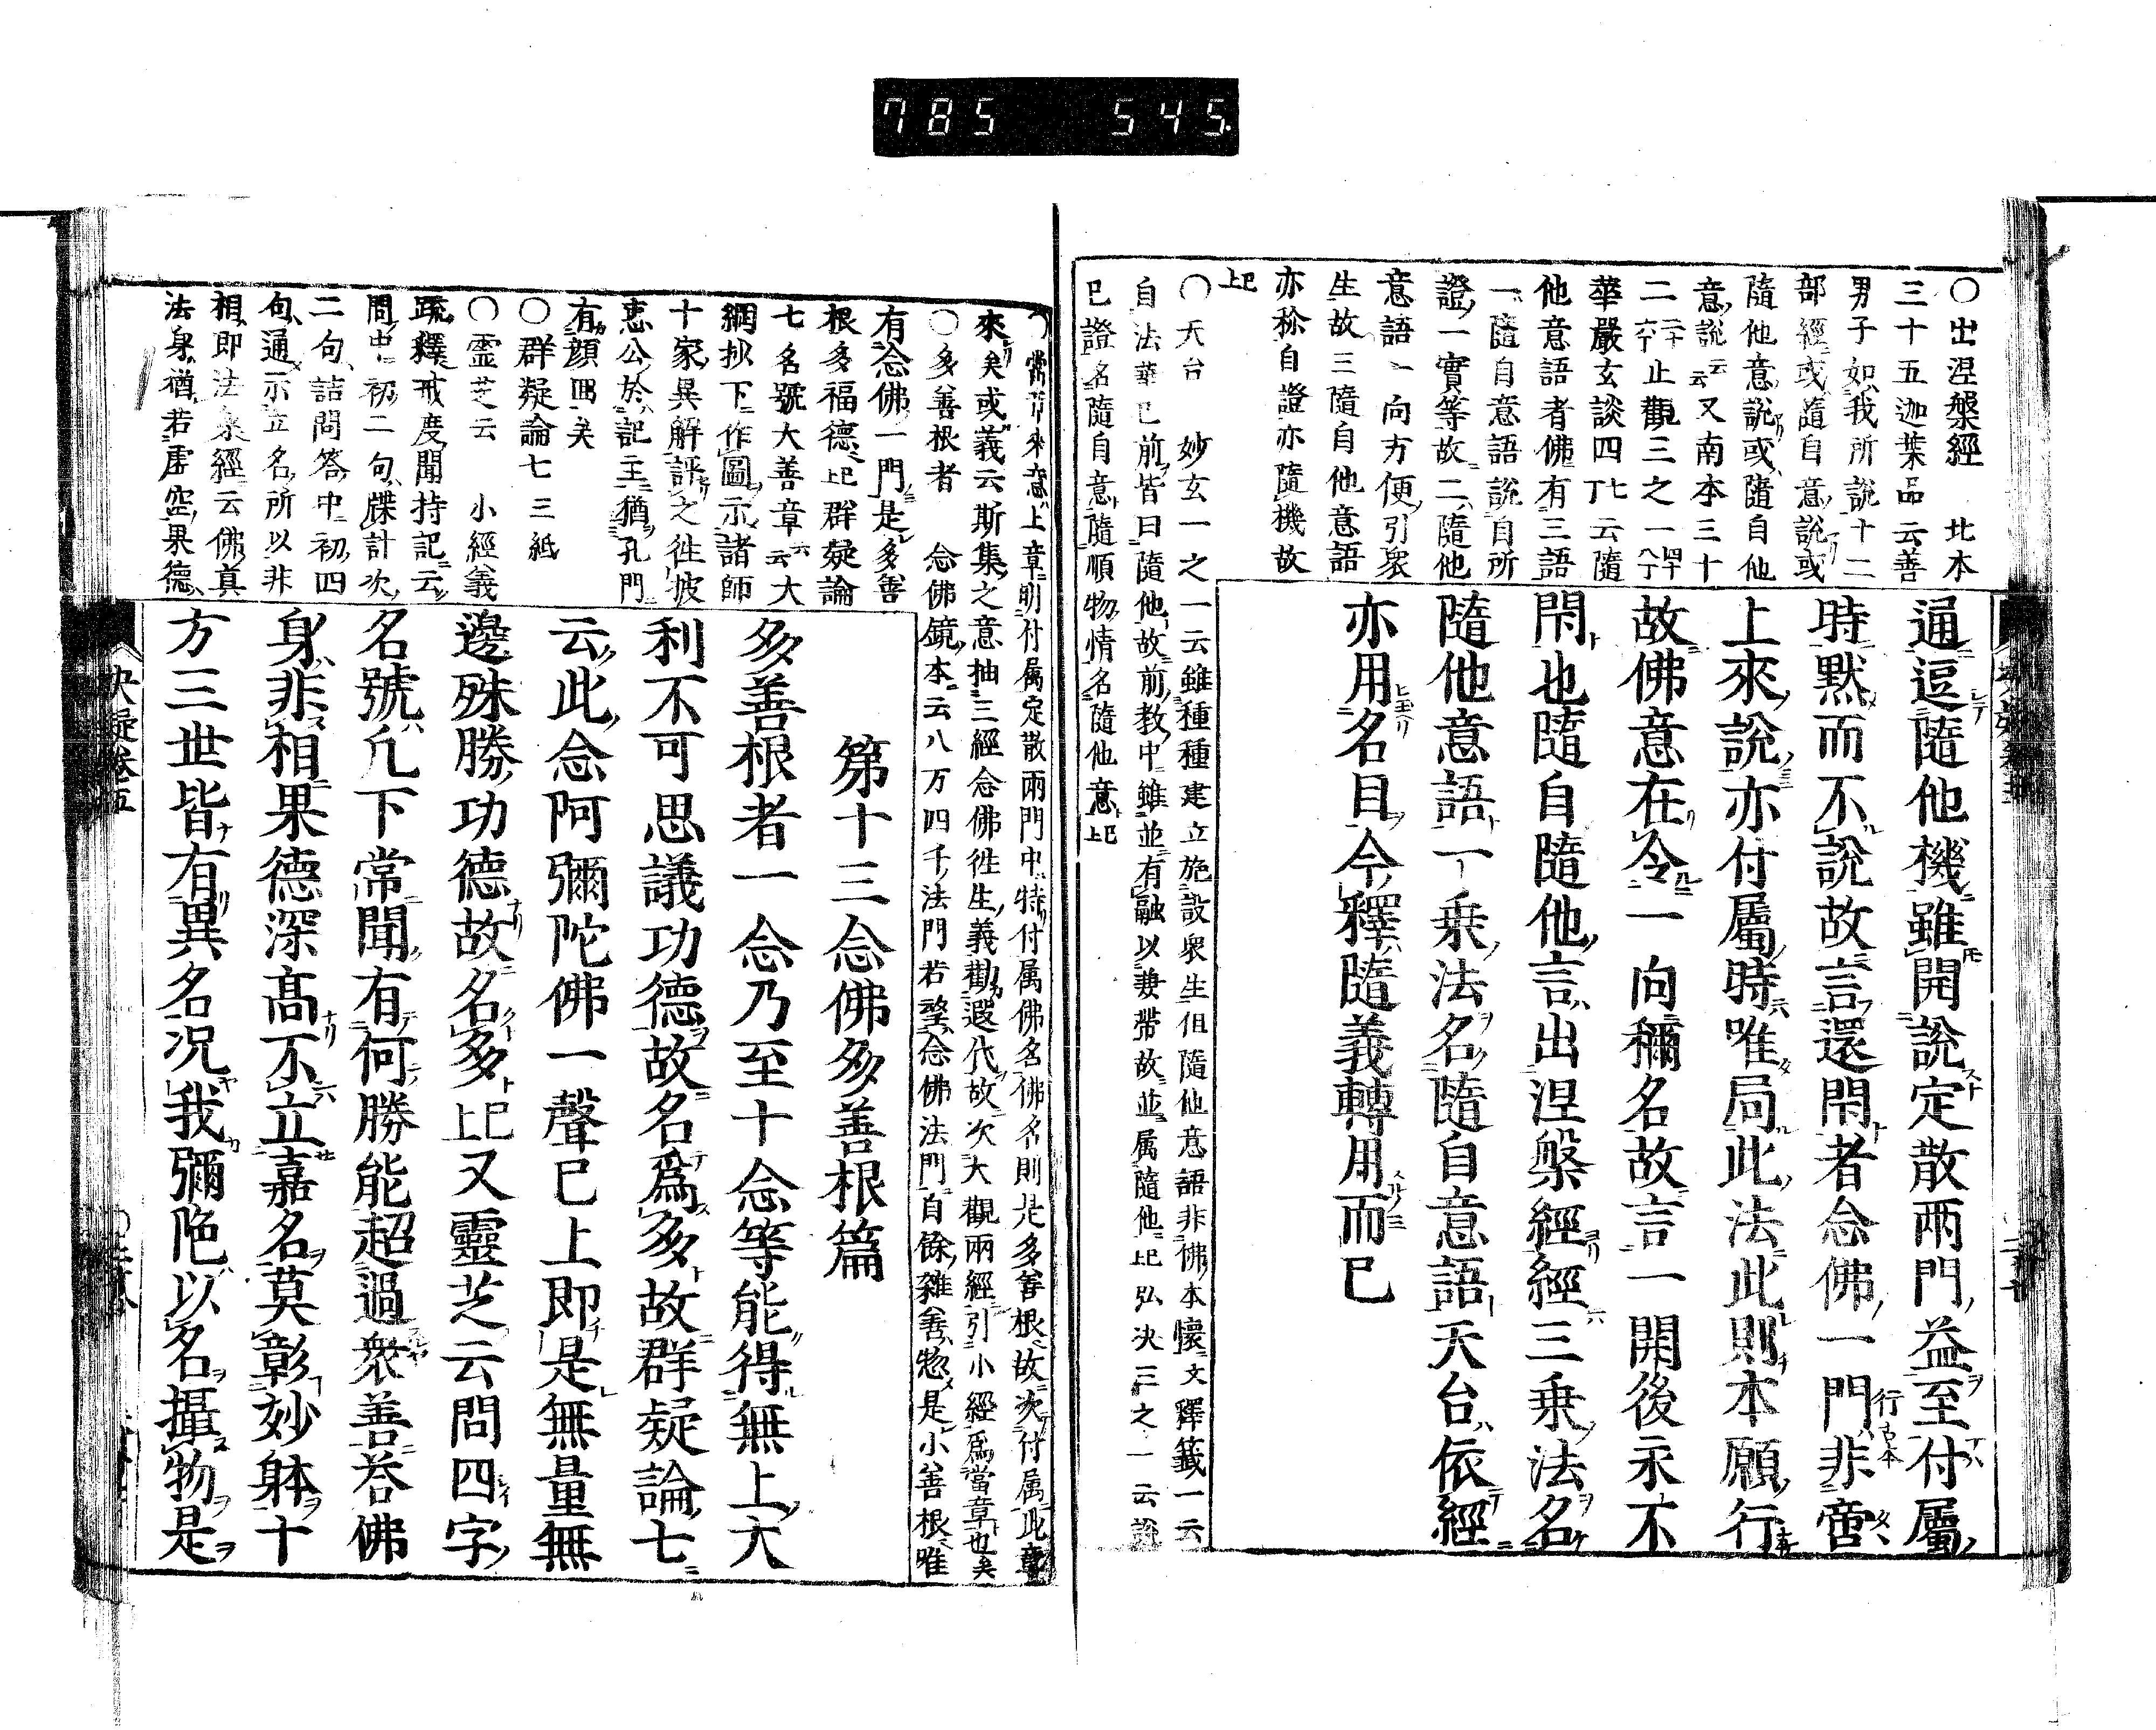 785 545.
○出涅槃經 北本
三十五迦葉品云善
男子如我所說十二
部經或隨自意說或
隨他意說或隨自他
意說云云又南本三十
二止觀三之一
華嚴玄談四云隨
他意語者佛有三語
一隨自意語說自所
證一實等故二隨他
意語一向方便引衆
生故三隨自他意語
亦稱自證亦隨機故
已上
○天台 妙玄一之一云雖種種建立施設衆生但隨他意語非佛本懷文釋籤一云
自法華已前皆曰隨他故前教中雖並有融以妻帶故並属隨他已上弘決三之一云說
已證名隨自意隨順物情名隨他意已上
通逗隨他機雖開說定散兩門益至付屬
時默而不說故言還閇者念佛一門非啻
行古本
上來說亦付屬時唯局此法此則本願行
故佛意在令一向稱名故言一開後永不
閇也隨自隨他言出涅槃經經三乗法名
隨他意語一乗法名隨自意語天台依經
亦用名目今釋隨義轉用而已
來矣或義云斯集之意抽三經念佛徃生義勸遐代故次大觀兩經引小經爲當章也矣
○多善根者 念佛鏡本云八万四千法門若望念佛法門自餘雜善惣是小善根唯
有念佛一門是多善
根多福德已上群疑論
七名號大善章云大
綱抄下作圖示諸師
十家異解評之徃披
惠公於記主猶孔門
有顔回矣
○群疑論七三紙
○霊芝云 小經義
疏釋戒度聞持記云
問中初二句牒計次
二句詰問答中初四
句通示立名所以非
相即法身經云佛真
法身猶若虚空果德
第十三念佛多善根篇
多善根者一念乃至十念等能得無上大
利不可思議功德故名爲多故群疑論七
云此念阿彌陀佛一聲已上即是無量無
邊殊勝功德故名多已上又靈芝云問四字
名號凢下常聞有何勝能超過衆善荅佛
身非相果德深髙不立嘉名莫彰妙躰十
方三世皆有異名况我彌陁以名攝物是
決疑卷五